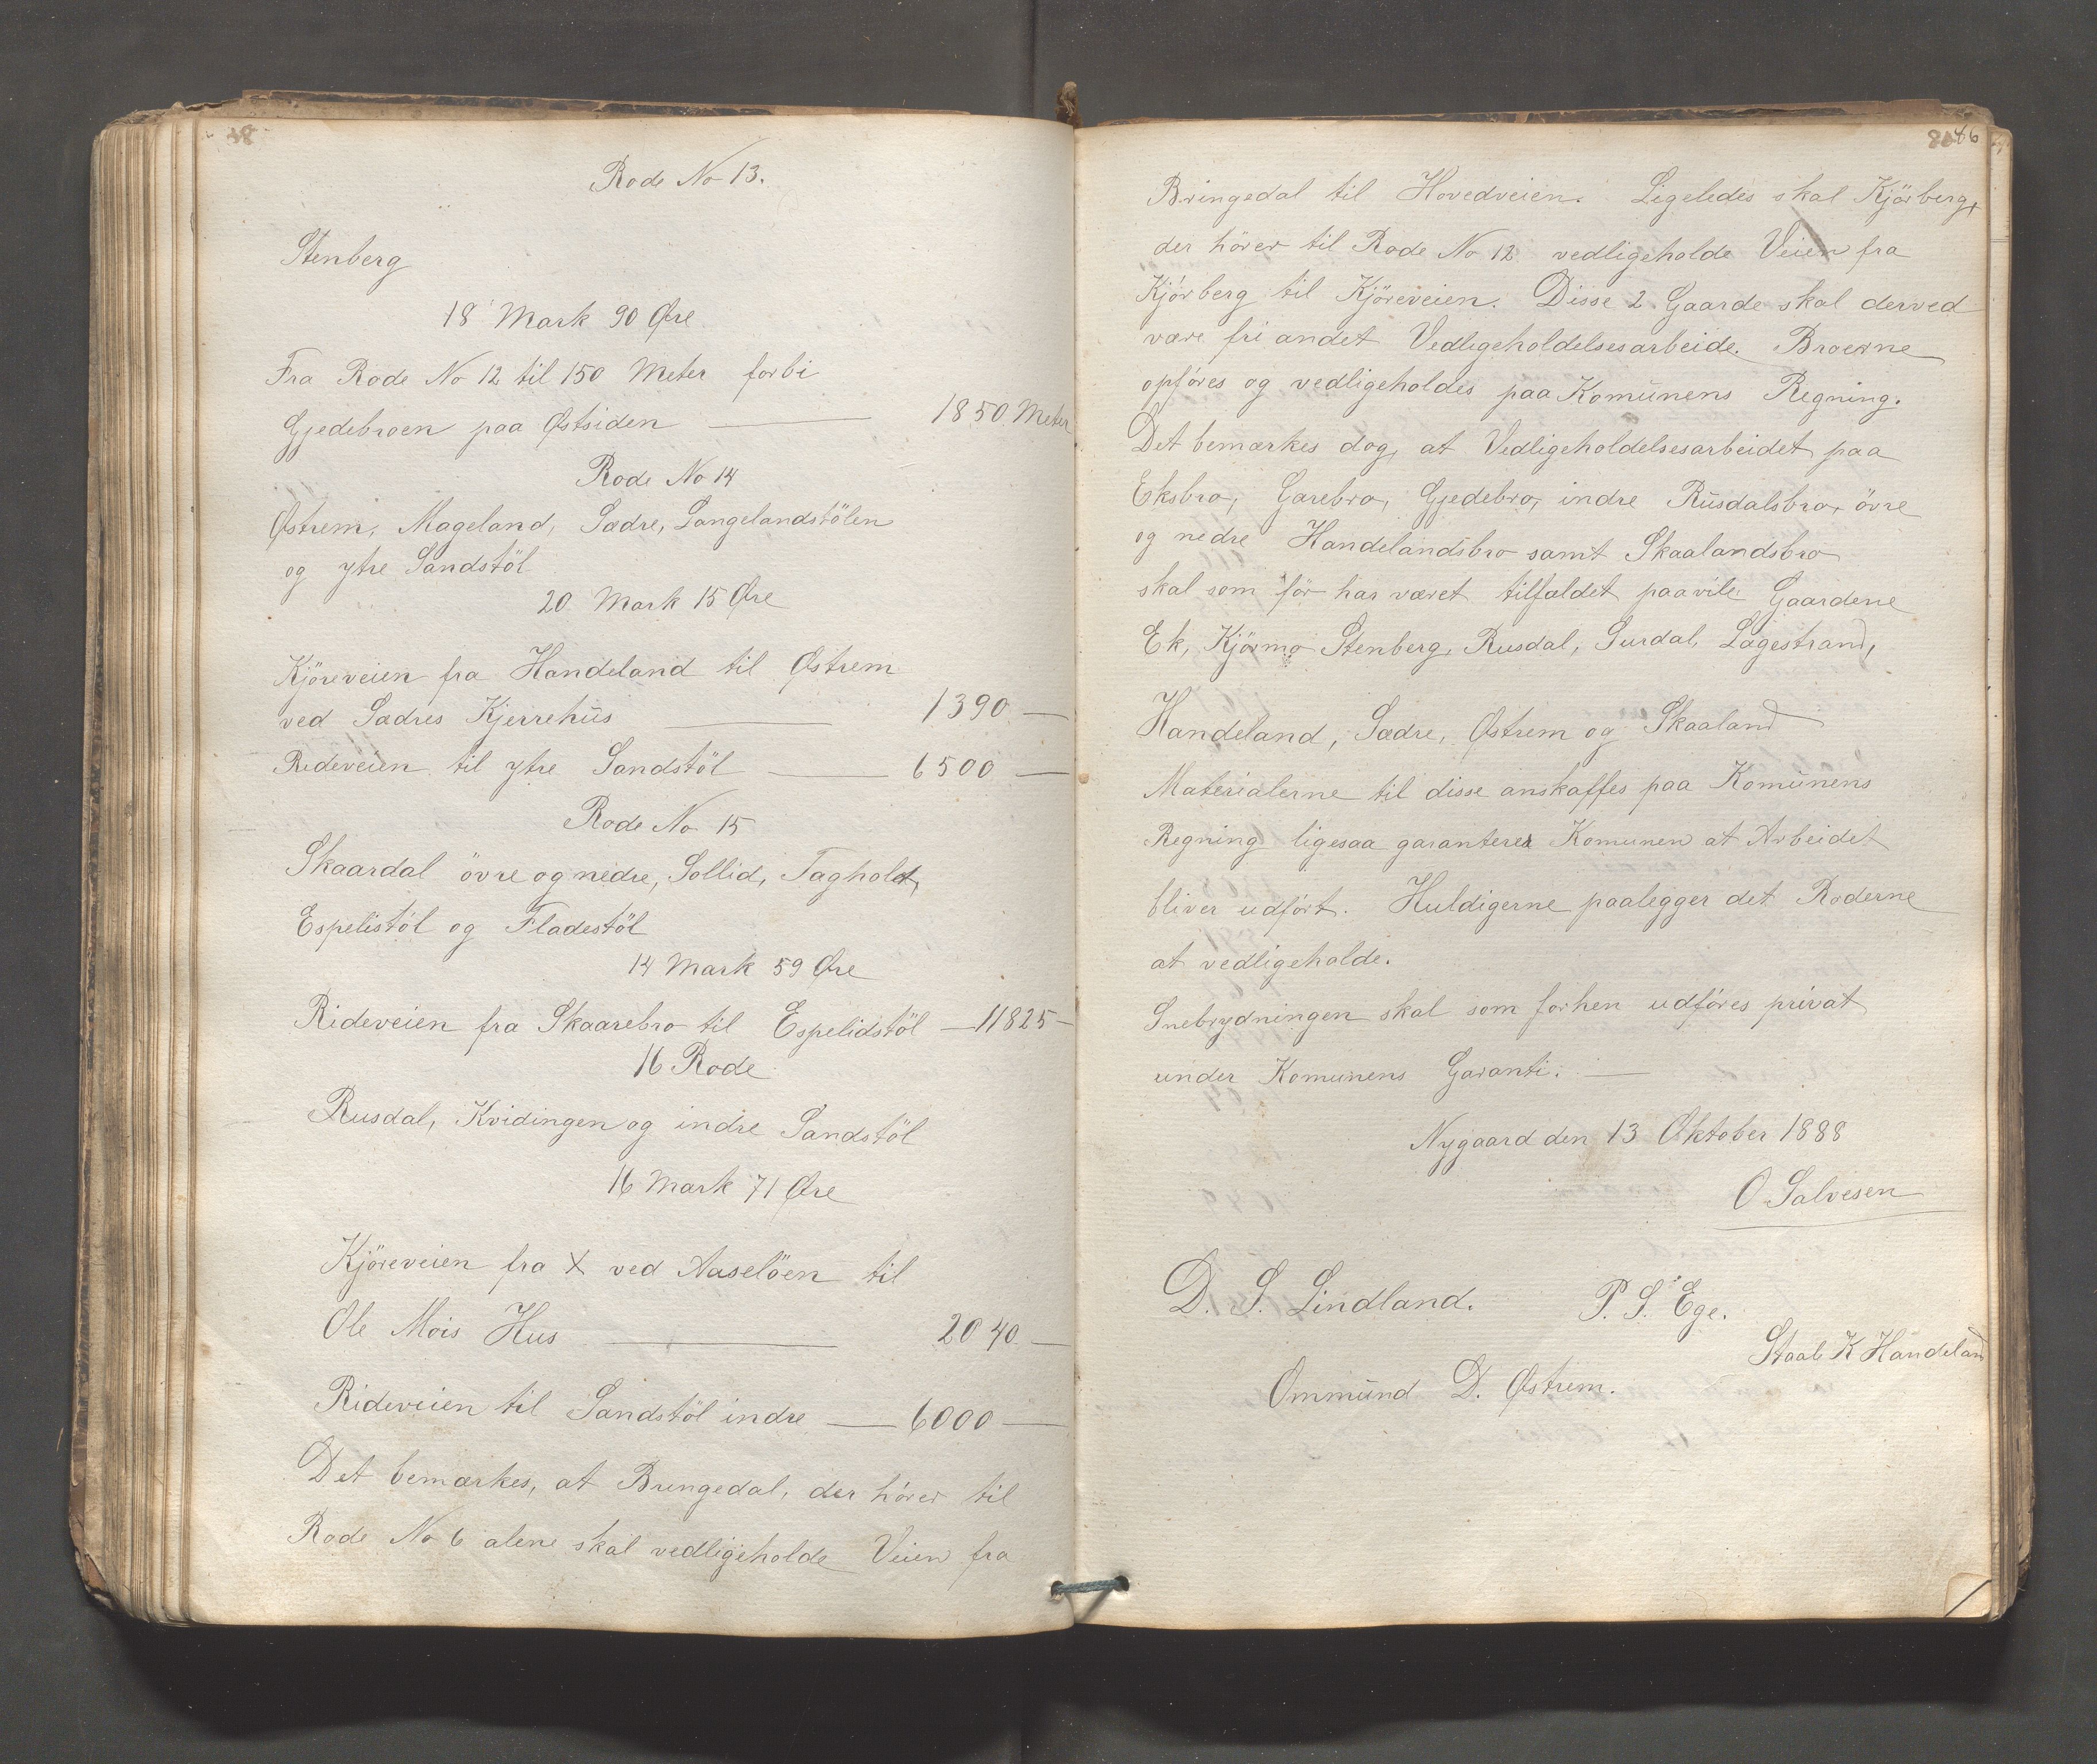 Rode No 13.
Stenberg
18 Mark 90 Øre
Fra Rode No 12 til 150 Meter forbi
Gjedebroen paa Østsiden — 1850 Meter
Rode No 14
Østrem, Mageland, Sædre, Langelandstölen
og ytre Sandstöl
20 Mark 15 Øre
Kjöreveien fra Handeland til Østrem
ved Sædres Kjerrehus — 1390 —
Rideveien til ytre Sandstöl — 6500 —
Rode No 15
Skaardal övre og nedre, Sollid, Taghold,
Espelistöl og Fladestöl
14 Mark 59 Øre
Rideveien fra Skaarebro til Espelidstöl — 11825 —
16 Rode
Rusdal, Kvidingen og indre Sandstöl
16 Mark 71 Øre
Kjöreveien fra X ved Aaselöen til
Ole Mois Hus — 2040 —
Rideveien til Sandstöl indre — 6000 —
Det bemærkes, at Bringedal, der hörer til
Rode No 6 alene skal vedligeholde Veien fra
46
Bringedal til Hovedveien. Ligeledes skal Kjörberg,
der hörer til Rode No 12 vedligeholde Veien fra
Kjörberg til Kjöreveien. Disse 2 Gaarde skal derved
være fri andet Vedligeholdelsesarbeide. Broerne
opföres og vedligeholdes paa Komunens Regning.
Det bemærkes dog, at Vedligeholdelsesarbeidet paa
Eksbro, Garebro, Gjedebro, indre Rusdalsbro, övre
og nedre Handelandsbro samt Skaalandsbro
skal som för har været tilfældet paavile Gaardene
Ek, Kjörmo Stenberg, Rusdal, Surdal, Lagestrand,
Handeland, Sædre, Østrem og Skaaland
Materialerne til disse anskaffes paa Komunens
Regning ligesaa garanterer Komunen at Arbeidet
bliver udfört. Huldigerne paalegger det Roderne
at vedligeholde.
Snebrydningen skal som forhen udföres privat
under Komunens Garanti. —
Nygaard den 13 Oktober 1888
O Salvesen
D. S. Lindland. P. S. Ege.
Staale K Handeland
Ommund D. Østrem.